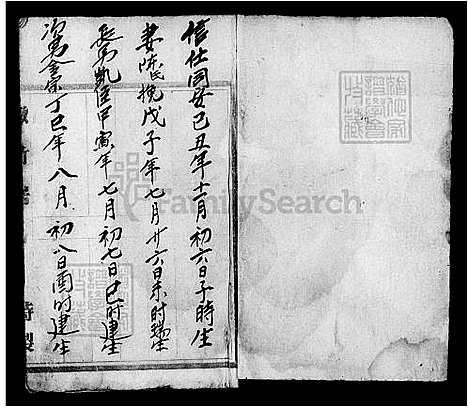 信士同安己丑年十一月初六日子時生
妻陈氏挽戊子年七月廿六日未时瑞生
長男凱臣甲寅年七月初七日巳时建生
次男金集丁巳年八月初八日酉时建生
特製
FamilySearch